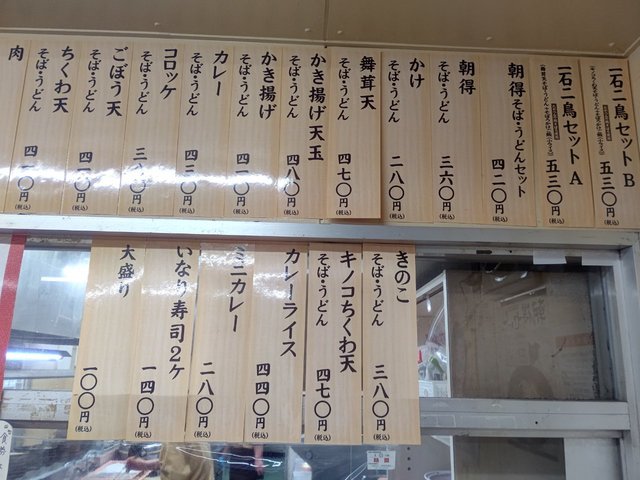 一石二鳥セット B
五三〇円
(税込)
一石二鳥セット A
五三〇円
(税込)
朝得そば・うどんセット
四二〇円
(税込)
朝得
そば・うどん
三六〇円
(税込)
かけ
そば・うどん
二八〇円
(税込)
舞茸天
そば・うどん
四七〇円
(税込)
かき揚げ天玉
そば・うどん
四八〇円
(税込)
かき揚げ
そば・うどん
四一〇円
(税込)
カレー
そば・うどん
四三〇円
(税込)
コロッケ
そば・うどん
三八〇円
(税込)
ごぼう天
そば・うどん
四一〇円
(税込)
ちくわ天
そば・うどん
(税込)
肉
そば・うどん
(税込)
きのこ
そば・うどん
三八〇円
(税込)
キノコちくわ天
そば・うどん
四七〇円
(税込)
カレーライス
四四〇円
(税込)
ミニカレー
二八〇円
(税込)
いなり寿司2ケ
一四〇円
(税込)
大盛り
一〇〇円
(税込)